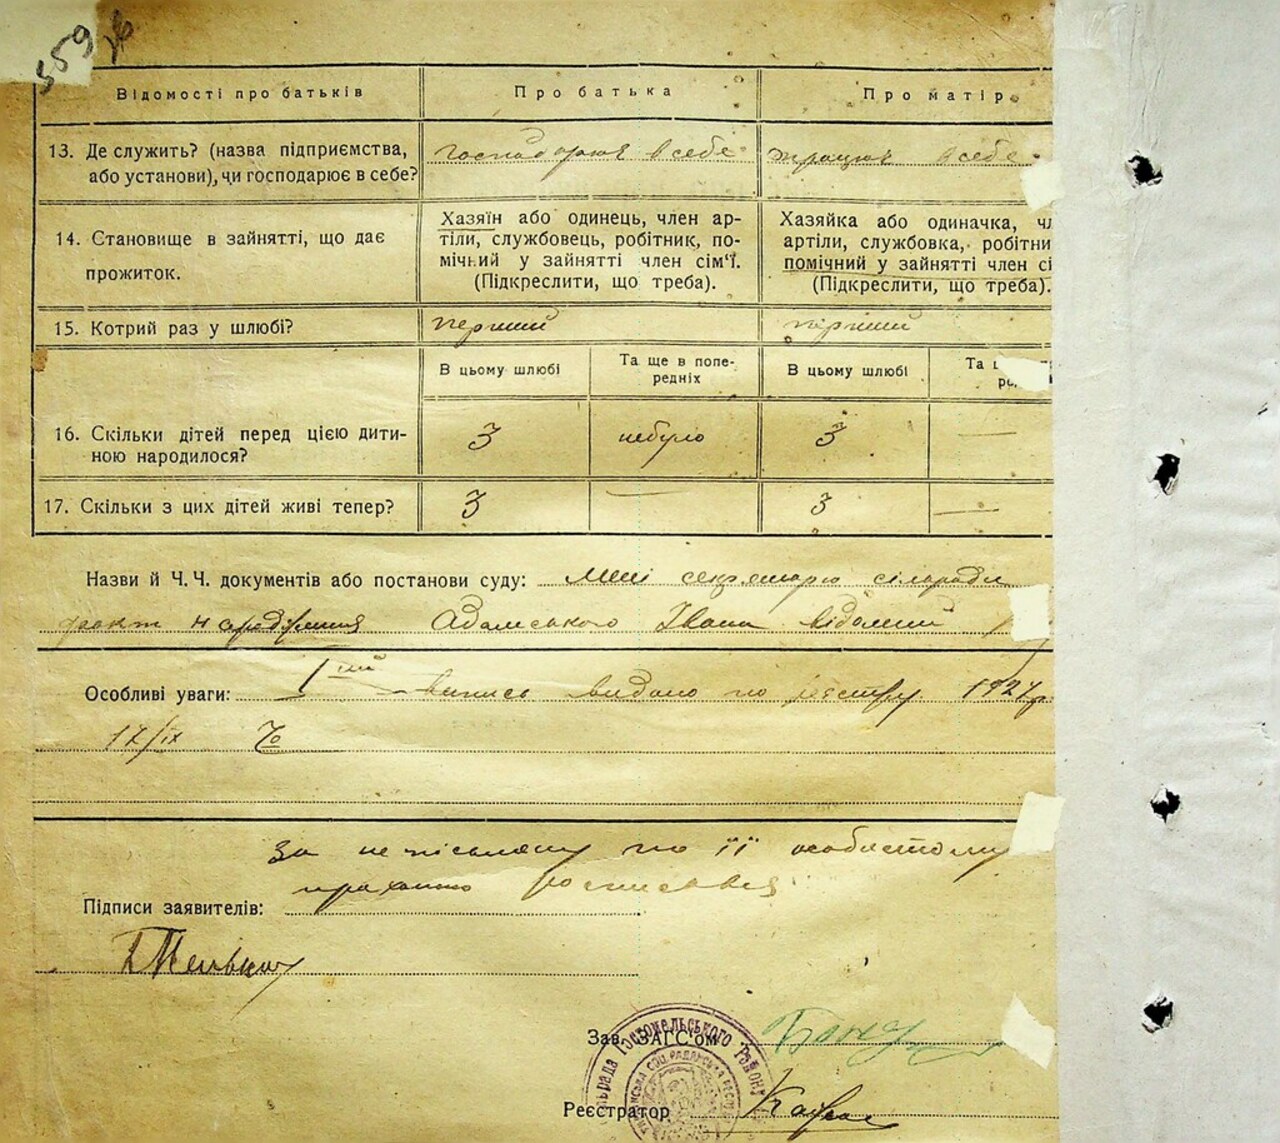 559
Відомості про батьків Про батька Про матір
13. Де служить? (назва підприємства, або установи), чи господарює в себе? господарює в себе працює в себе
14. Становище в зайнятті, що дає прожиток.
Хазяїн або одинець, член ар-
тіли, службовець, робітник, по-
мічний у зайнятті член сім'ї.
(Підкреслити, що треба).
Хазяйка або одиначка, чл
артіли, службовка, робітни
помічний у зайнятті член сі
(Підкреслити, що треба).
15. Котрий раз у шлюбі? перший перший
В цьому шлюбі Та ще в попе-редніх В цьому шлюбі Та
16. Скільки дітей перед цією дити-ною народилося? 3 небуло 3 —
17. Скільки з цих дітей живі тепер? 3 — 3 —
Назви й Ч.Ч. документів або постанови суду: Мені секретарю сільради
факт народження Адамського Івана відомий
Особливі уваги: I ший випись видано по реєстру 1927р
17/IX
За неписьмену по її особистому
проханню росписався
Підписи заявителів:
Зав. ЗАГС'ом
Гостомельського Району
Реєстратор